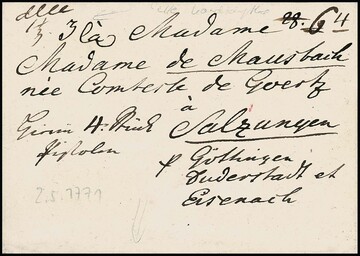 à Madame 6 4
Madame de Mausbach
née Comtesse de Goertz
à
Salzungen
Hierin 4: Stück
Pistolen
p Göttingen
Duderstadt et
Eisenach
2.5.1771